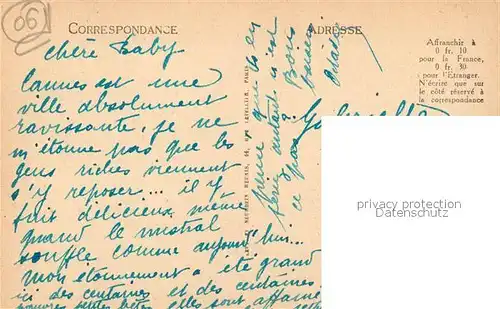 06
CORRESPONDANCE
ADRESSE
Affranchir à
0 fr. 10
pour la France,
0 fr. 30
pour l'Étranger.
N'écrire que sur
le côté réservé à
la correspondance
chère Baby
Cannes est une
ville absolument
ravissante, je ne
m'étonne pas que les
gens riches viennent
s'y reposer... il y
fait délicieux même
quand le mistral
souffle comme aujourd'hui...
mon étonnement a été grand
ici des centaines et des centaines
pauvres petites bêtes elles sont
pense que tu en
feras autant
ce pas ?
Bois
Gabrielle
privacy protection
Datenschutz